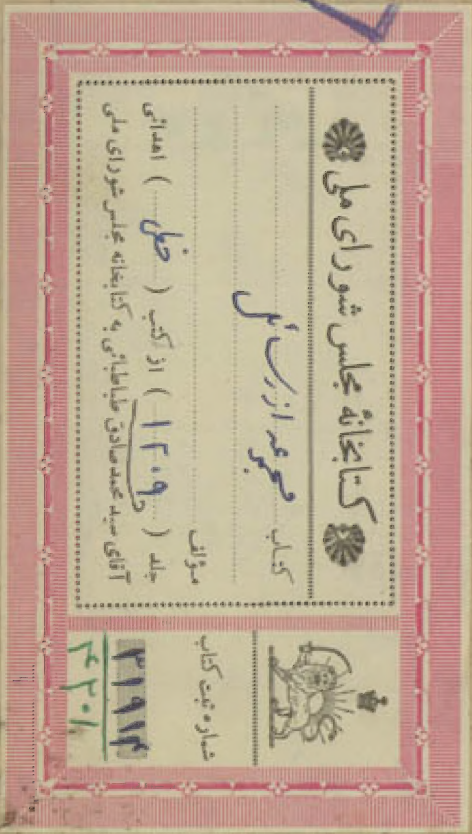 کتابخانهٔ مجلس شورای ملی
کتاب مجموعه از رسائل
مؤلف
جلد ( ۱۲۰۹ ) از کتب ( خطی ) اهدائی
آقای سید محمد صادق طباطبائی به کتابخانه مجلس شورای ملی
شماره ثبت کتاب
۳۱۹۱۴
۴۲۰۱